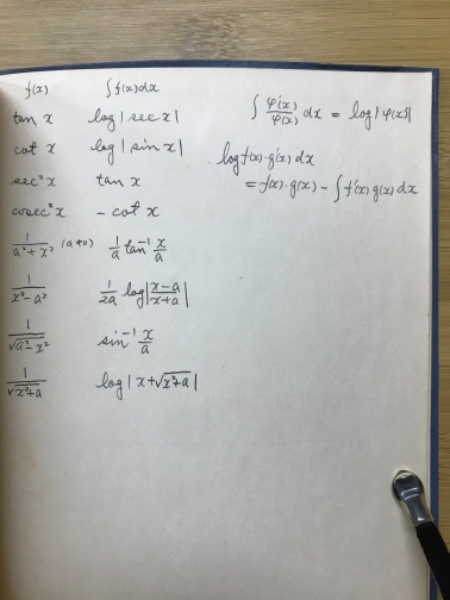 f(x) ∫f(x)dx
tan x log|sec x|
cot x log|sin x|
sec²x tan x
cosec²x - cot x
1/(a²+x²) (a≠0) 1/a tan⁻¹ x/a
1/(x²-a²) 1/2a log|(x-a)/(x+a)|
1/√(a²-x²) sin⁻¹ x/a
1/√(x²+a) log|x+√(x²+a)|
∫ φ'(x)/φ(x) dx = log|φ(x)|
log f(x)·g'(x) dx
= f(x)·g(x) - ∫f'(x)g(x)dx